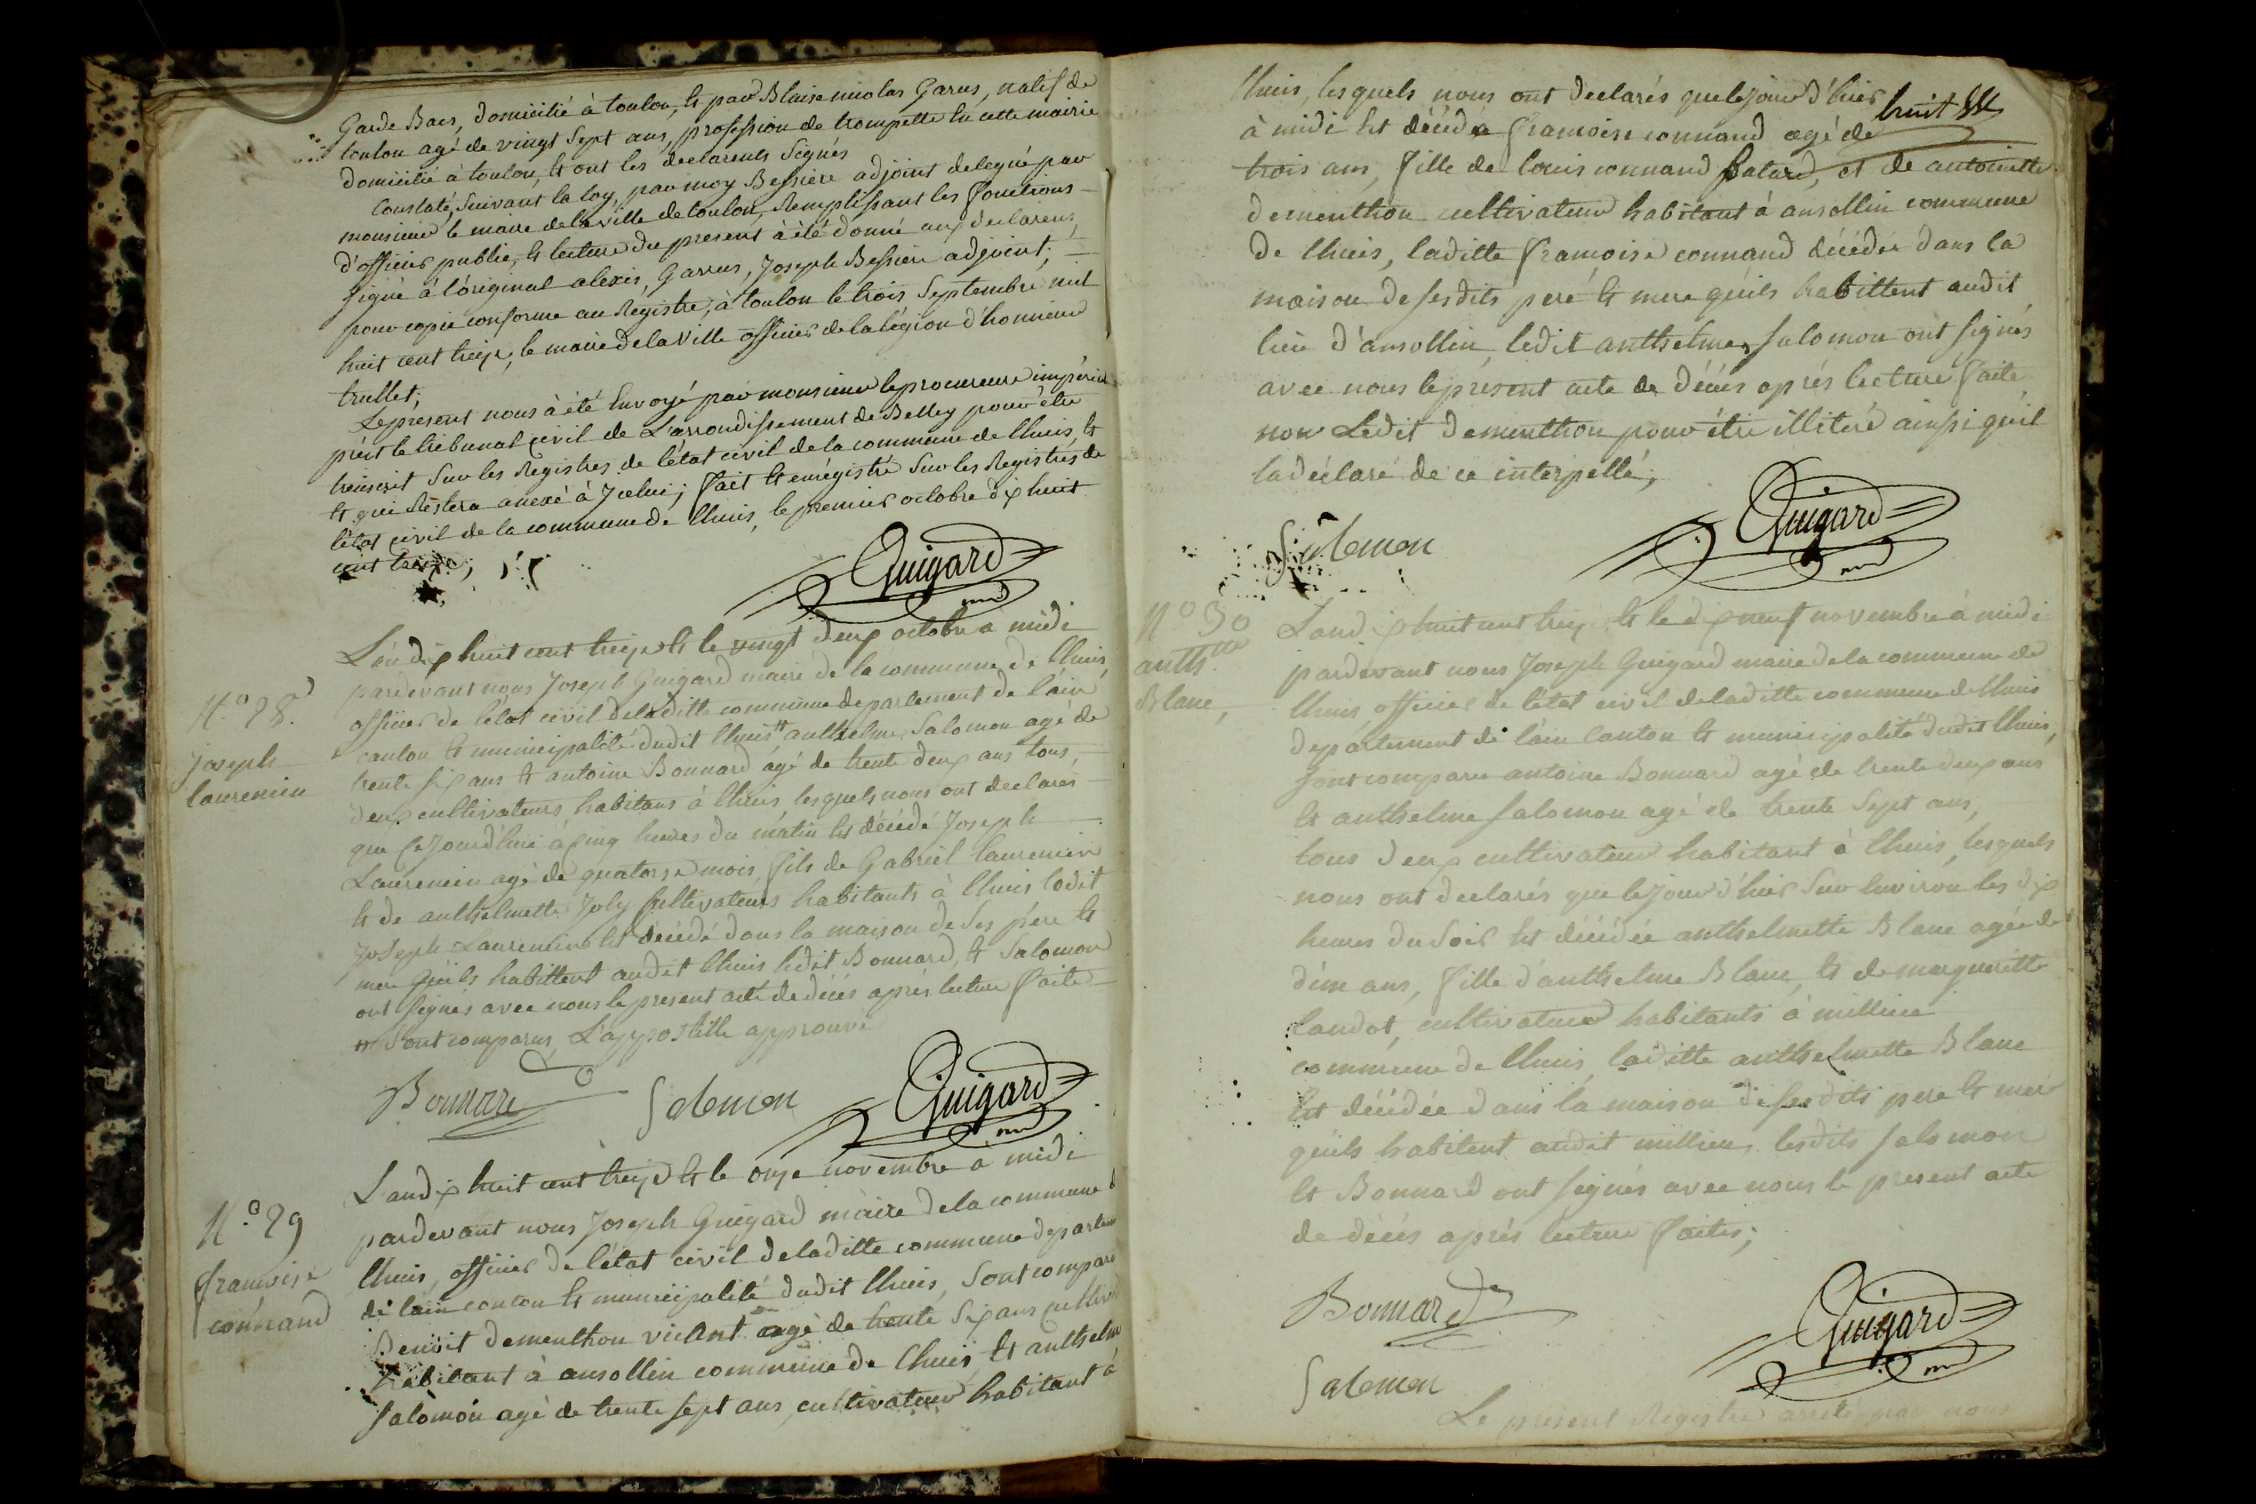 Garde Bacs, domicilié à toulon, et par Blaise nicolas Garus, natif de
toulon agé de vingt Sept ans, profession de trompette en cette mairie
domicilié à toulon, et ont les declarents Signés
Constaté, Suivant la loy, par moy Bessiere adjoint delegué par
monsieur le maire de la ville de toulon, Remplissant les fonctions
d'officier public, et lecture du present à été donné aux declarens,
signé à l'original alexis, Garrus, Joseph Bessiere adjoint;
pour copie conforme au Registre, à toulon le trois Septembre mil
huit cent treize, le maire de la Ville officier de la légion d'honneur
trullet;
Le present nous à été Envoyé par monsieur le procureur impérial
prést le tribunal civil de L'arrondissement de Belley pour être
transcrit Sur les Registres de l'état civil de la commune de lhuis, et
et qui Réstera anexé à Jcelui; fait et enrégistré Sur les Registrés de
l'état civil de la commune de lhuis, le premier octobre dix huit
cent treize,
Guigard
N.o 28.
Joseph
laurencin
L'an dix huit cent treize et le vingt deux octobre à midi
pardevant nous Joseph Guigard maire de la commune de lhuis,
officier de l'état civil de laditte commune departement de l'ain
canton et municipalité dudit lhuis # anthelme Salomon agé de
trente six ans et antoine Bonnard agé de trente deux ans tous,
deux cultivateurs, habitans à lhuis lesquels nous ont declarés
que cejourd'hui à cinq heures du matin est décédé Joseph
Laurencin agé de quatorse mois, fils de Gabriel laurencin
et de anthelmette Joly cultivateurs habitants à lhuis ledit
Joseph Laurencin est décédé dans la maison de Ses pére et
mere qu'ils habittent audit lhuis ledit Bonnard, et Salomon
ont signés avec nous le present acte de décés aprés lecture faite
# Sont comparus, L'appostille approuvé
Bonnard Salomon Guigard
N.o 29
francoise
connand
L'an dix huit cent treize et le onze novembre à midi
pardevant nous Joseph Guigard maire de la commune de
lhuis, officier de l'état civil de laditte commune departement
de lain canton et municipalité dudit lhuis, Sont comparu
Benoit dementhon agé de trente Six ans
habitant à ansollin commune de lhuis et anthelme
salomon agé de trente sept ans, cultivateur habitant à
lhuis, lesquels nous ont declarés que le jour d'hier
à midi est décédée francoise connand agé de huit
trois ans, fille de louis connand Patard, et de antoinette
dementhon cultivateur habitant à ansollin commune
de lhuis, laditte françoise connand décédée dans la
maison de sesdits peré et mere qu'ils habittent audit
lieu d'ansollin, ledit anthelme salomon ont signés
avec nous le present acte de décés aprés lecture faite
non Ledit dementhon pour étre illiteré ainsi qu'il
la déclaré de ce interpellé;
Salomon Guigard
N.o 30
anth.tte
Blanc,
L'an dix huit cent treize et le dix neuf novembre à midi
pardevant nous Joseph Guigard maire de la commune de
lhuis, officier de l'état civil de laditte commune de lhuis
departement de l'ain Canton et municipalité dudit lhuis,
sont comparu antoine Bonnard agé de trente deux ans
et anthelme salomon agé de trente Sept ans,
tous deux cultivateur habitant à lhuis, lesquels
nous ont declarés que le jour d'hier Sur Environ les dix
heures du Soir est décédée anthelmette Blanc agée de
d'un ans, fille d'anthelme Blanc, et de marguerite
landot, cultivateur habitants à millieu
commune de lhuis, laditte anthelmette Blanc
est décédée dans la maison de sesdits pere et mere
qu'ils habitent audit millieu, lesdits salomon
et Bonnard ont signés avec nous le present acte
de décés aprés lecture faites;
Bonnard
Guigard
Salomon
Le present Registre arrêté par nous